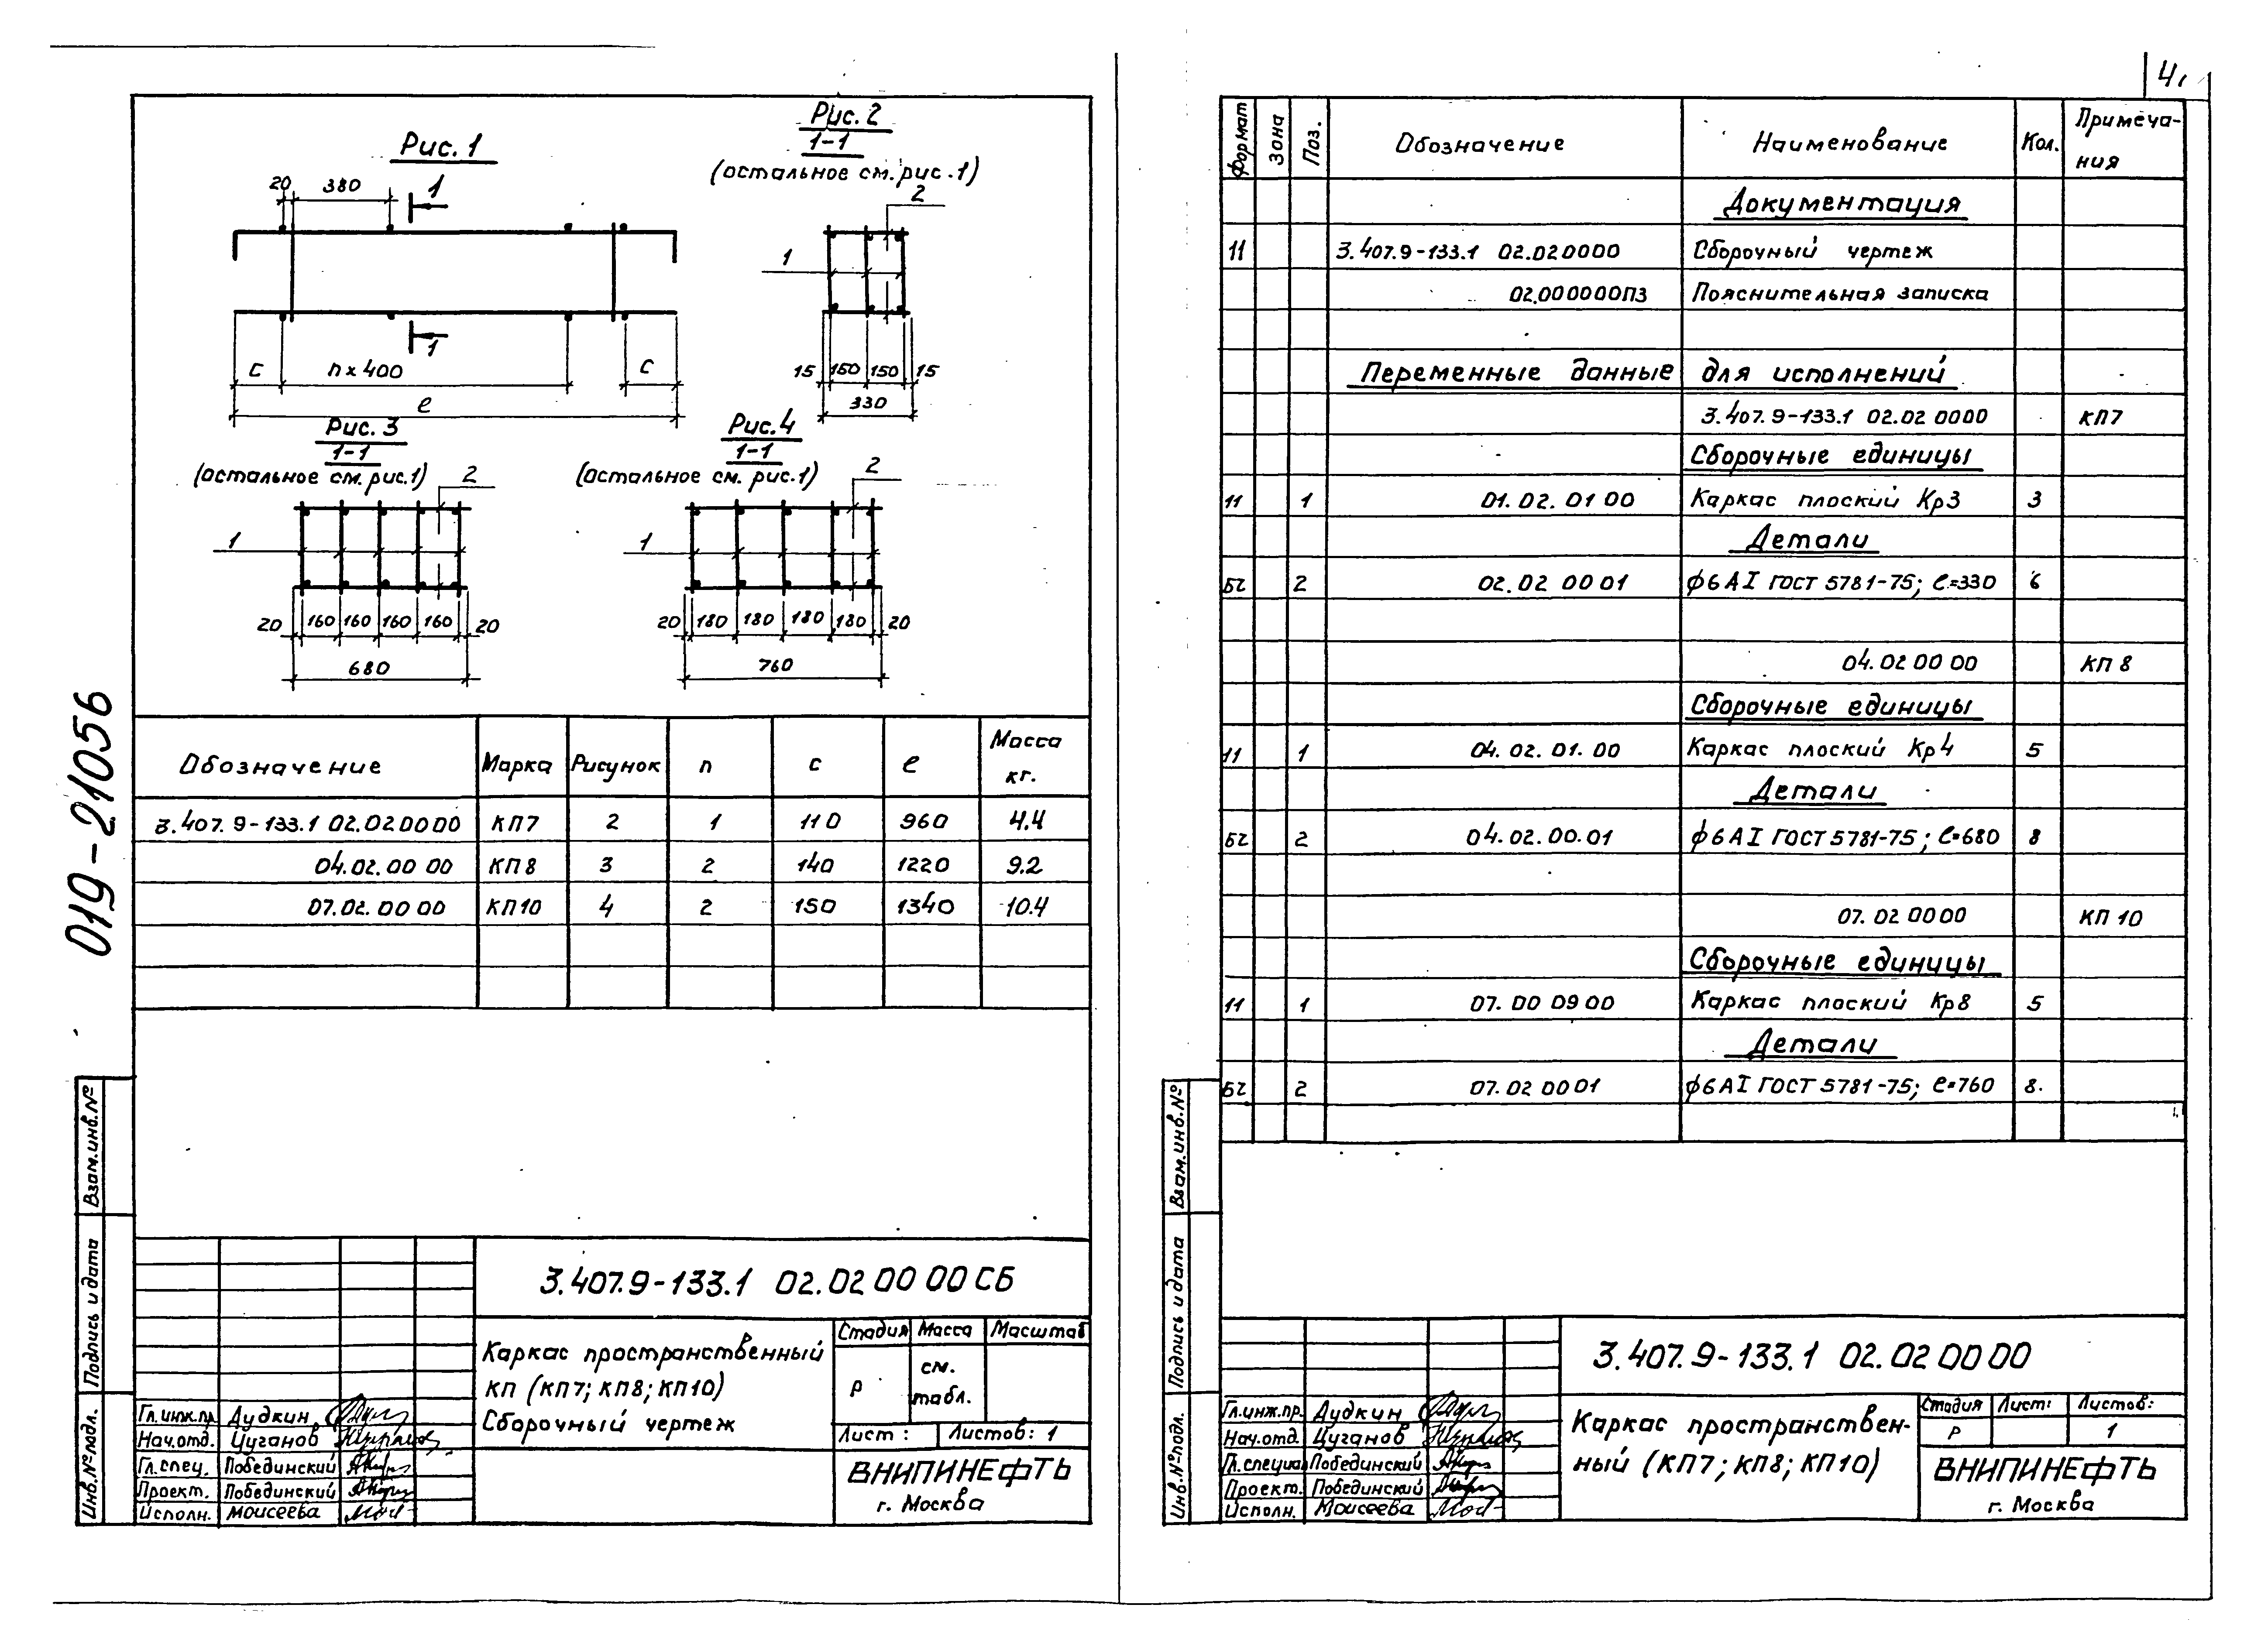 Рис. 1
20 380 1
1
с n x 400 с
ℓ
Рис. 2
1-1
(остальное см. рис. 1)
2
1
15 150 150 15
330
Рис. 3
1-1
(остальное см. рис. 1)
2
1
20 160 160 160 160 20
680
Рис. 4
1-1
(остальное см. рис. 1)
2
1
20 180 180 180 180 20
760
Обозначение Марка Рисунок n с ℓ Масса кг.
3.407.9-133.1 02.02 00 00 КП7 2 1 110 960 4.4
04.02.00 00 КП8 3 2 140 1220 9.2
07.02.00 00 КП10 4 2 150 1340 10.4
019-21056
Взам.инв.№
Подпись и дата
Инв.№подл.
3.407.9-133.1 02.02 00 00 СБ
Каркас пространственный
КП (КП7; КП8; КП10)
Сборочный чертеж
Стадия Масса Масштаб
Р см. табл.
Лист: Листов: 1
ВНИПИНЕФТЬ
г. Москва
Гл.инж.пр. Дудкин
Нач.отд. Цуганов
Гл.спец. Побединский
Проект. Побединский
Исполн. Моисеева
4
Формат Зона Поз. Обозначение Наименование Кол. Примеча-
ния
Документация
11 3.407.9-133.1 02.020000 Сборочный чертеж
02.000000ПЗ Пояснительная записка
Переменные данные для исполнений
3.407.9-133.1 02.02 0000 КП7
Сборочные единицы
11 1 01.02.01 00 Каркас плоский Кр3 3
Детали
БЧ 2 02.02 00 01 ф6АI ГОСТ 5781-75; ℓ=330 6
04.02 00 00 КП 8
Сборочные единицы
11 1 04.02.01.00 Каркас плоский Кр4 5
Детали
БЧ 2 04.02.00.01 ф6АI ГОСТ 5781-75; ℓ=680 8
07.02 00 00 КП 10
Сборочные единицы
11 1 07.00 09 00 Каркас плоский Кр8 5
Детали
БЧ 2 07.02 00 01 ф6АI ГОСТ 5781-75; ℓ=760 8.
Взам.инв.№
Подпись и дата
Инв.№подл.
3.407.9-133.1 02.02 00 00
Каркас пространствен-
ный (КП7; КП8; КП10)
Стадия Лист: Листов:
Р 1
ВНИПИНЕФТЬ
г. Москва
Гл.инж.пр. Дудкин
Нач.отд. Цуганов
Гл.специал Побединский
Проект. Побединский
Исполн. Моисеева